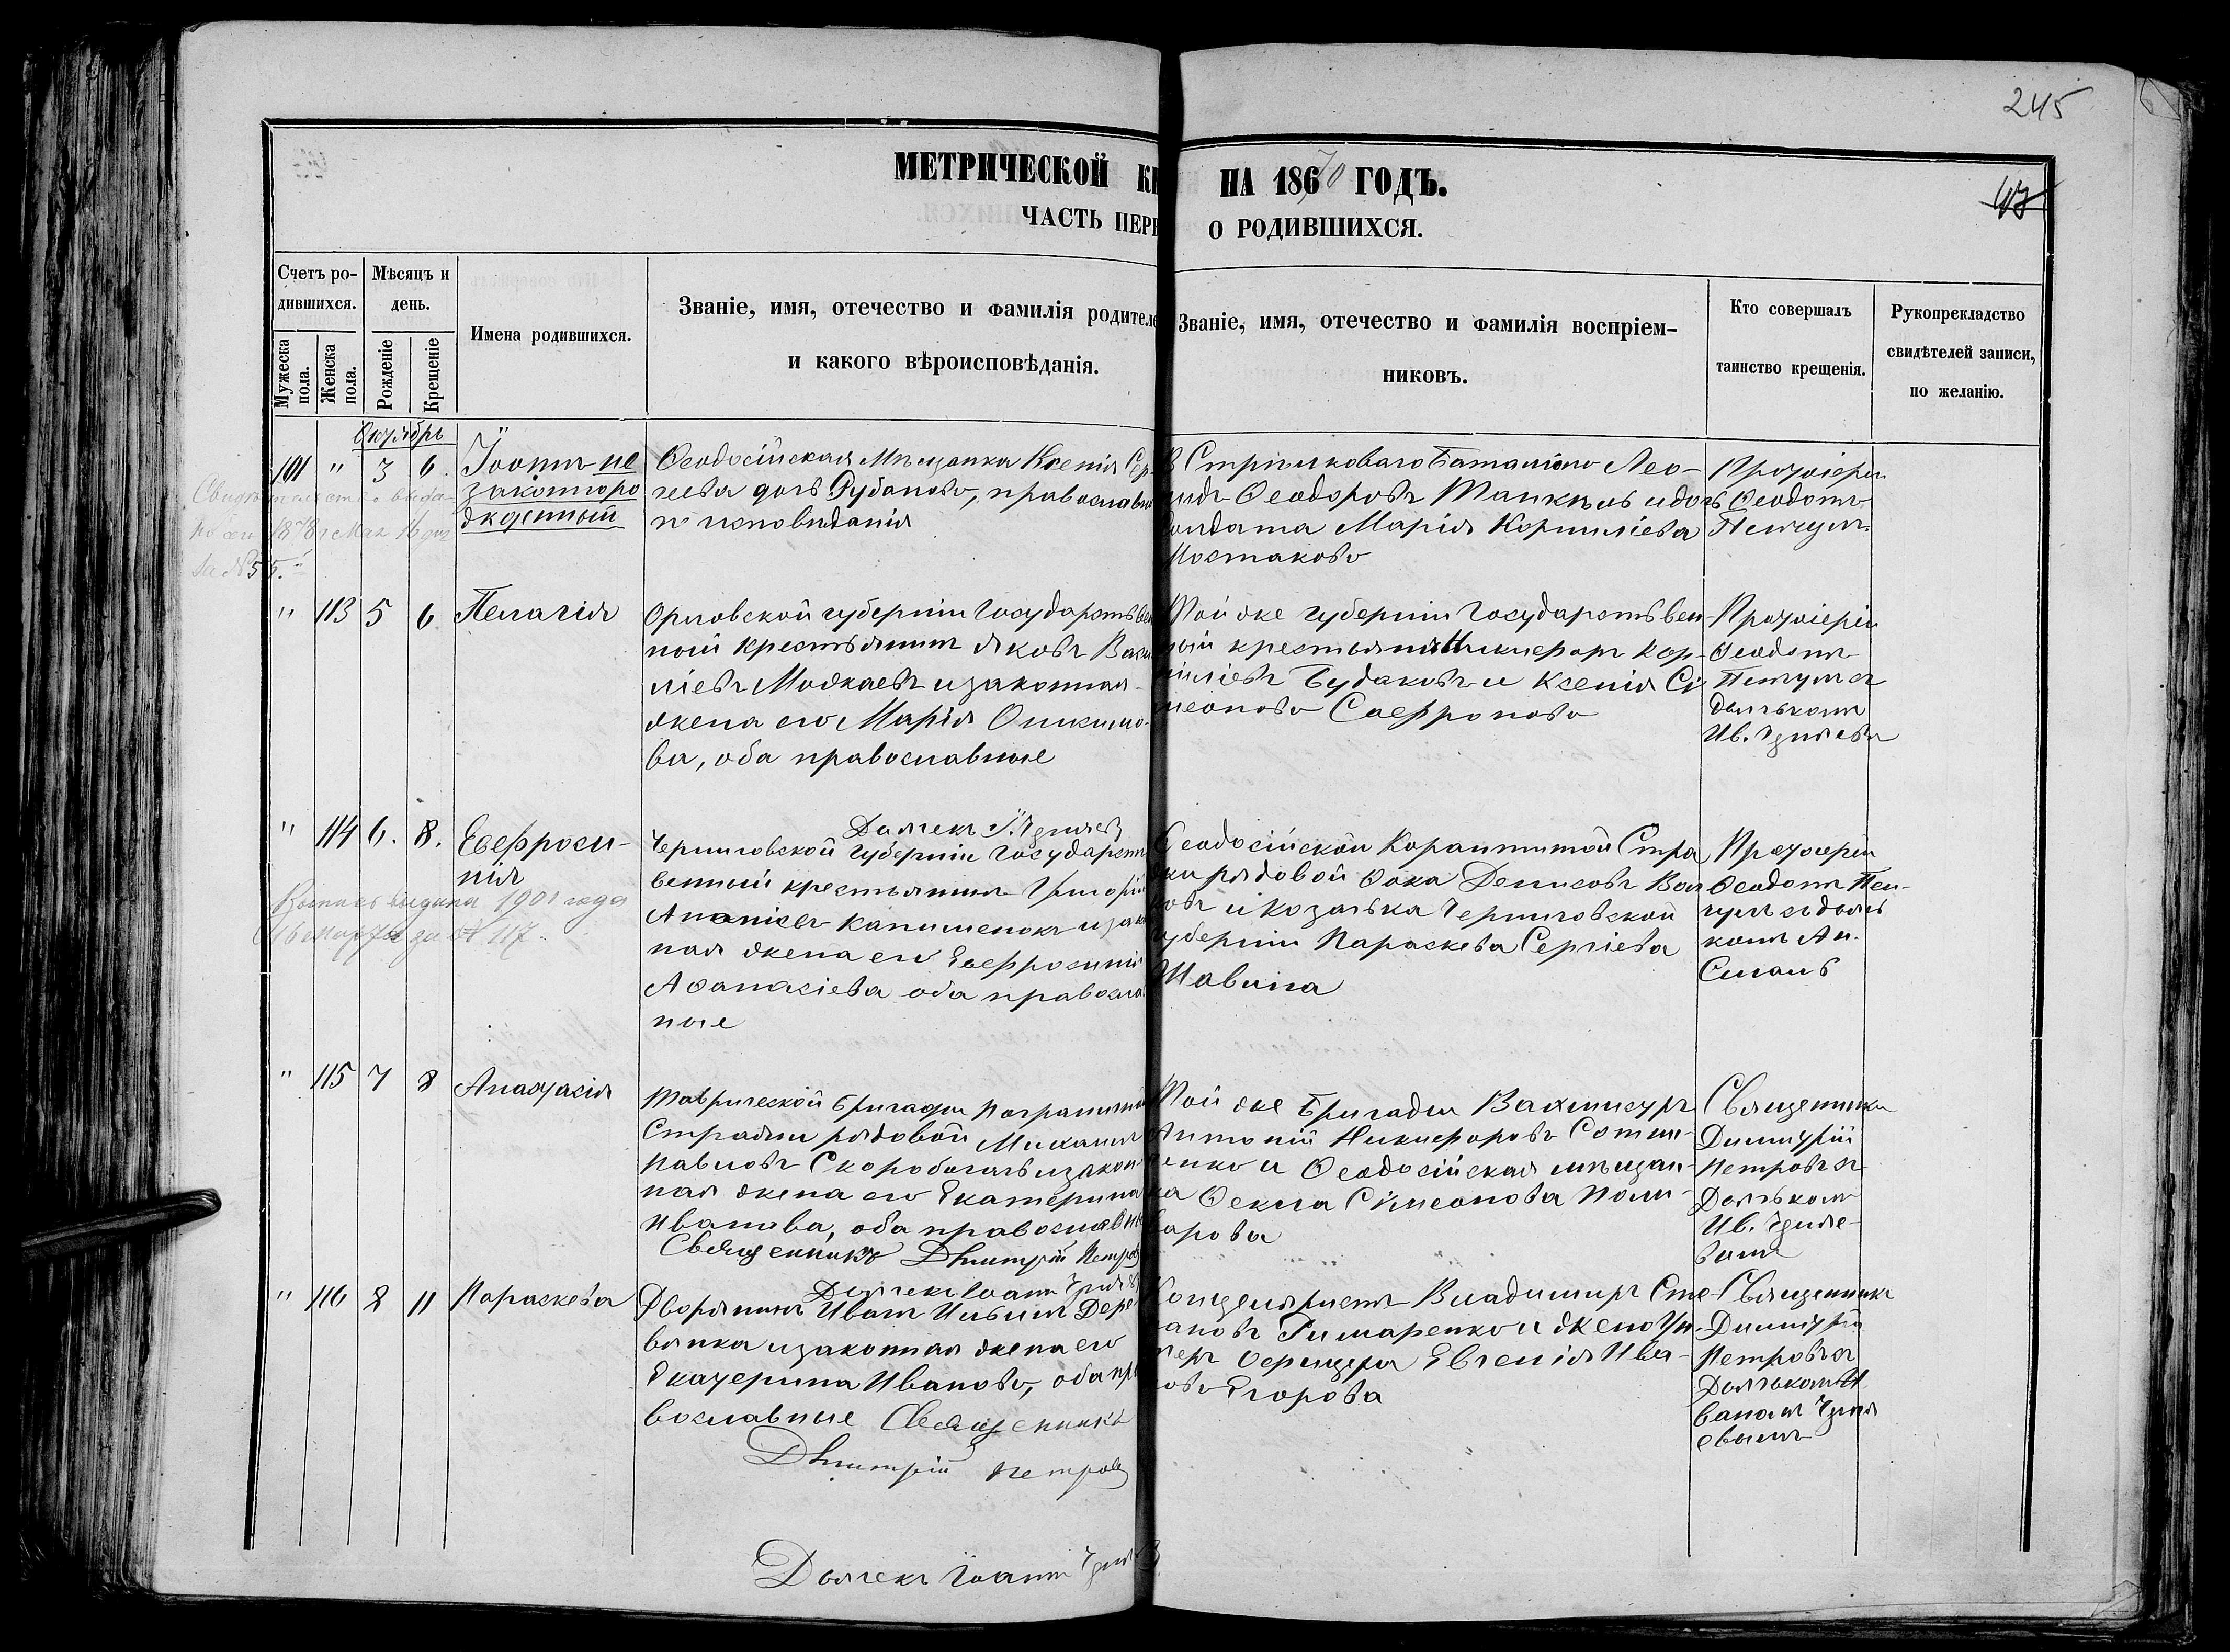 245
МЕТРИЧЕСКОЙ КН
НА 1870 ГОДЪ.
47
ЧАСТЬ ПЕРВ
О РОДИВШИХСЯ.
Счетъ ро-
дившихся.
Мужеска пола.
Женска пола.
Мѣсяцъ и
день.
Рожденіе
Крещеніе
Имена родившихся.
Званіе, имя, отечество и фамилія родителе
и какого вѣроисповѣданія.
Званіе, имя, отечество и фамилія воспріем-
никовъ.
Кто совершалъ
таинство крещенія.
Рукопрекладство
свидѣтелей записи,
по желанію.
Октябрь
101 " 3 6.
Іоаннъ не
закономро
жденный
Ѳеодосійская Мѣщанка Ксенія Сер-
гіева дочь Рубанова, православн
исповѣданія
Стрѣлковаго Баталіона Лео-
нидъ Ѳеодоровъ и дочь
солдата Марія Корниліева
Протоіерей
Ѳеодотъ
1878 г Мая 16 дня
за № 55.
" 113 5 6
Пелагія
Орловской губерніи Государствен
ной крестьянинъ Яковъ Васи
ліевъ и законная
жена его Марія
ва, оба православные
Той же губерніи Государствен
ный крестьянинъ Никифоръ Кор-
ниліевъ Будаковъ и Ксенія Си
меонова Сафронова
Протоіерей
Ѳеодотъ
съ
дьячкомъ
Ив.
" 114 6. 8.
Евфроси-
нія
Выпись выдана 1901 года
Марта за № 117
Дьячекъ І.
Черниговской Губерніи Государст
венный крестьянинъ Григорій
Ананіевъ и закон
ная жена его Евфросинія
Аѳанасіева оба православ
ные
Ѳеодосійской Карантинной Стра
жи рядовой Ѳока Денисовъ Вол
ковъ и Козачка Черниговской
губерніи Параскева Сергіева
Протоіерей
Ѳеодотъ
съ дьяч
комъ
" 115 7 8
Анастасія
Таврической бригады Пограничной
Стражи рядовой Михаилъ
Павловъ Скоробогачъ и закон
ная жена его Екатерина
Иванова, оба православны
Священникъ Дмитрій Петров
Дьячекъ Іоаннъ
Той же Бригады Вахмистръ
Антоній Никифоровъ Сотни-
ченко и Ѳеодосійская мѣщан-
ка Ѳекла Симеонова Поли-
карова
Священникъ
Димитрій
Петровъ съ
Дьячкомъ
Ив.
" 116 8 11
Параскева
Дворянинъ Иванъ Ильинъ Дере
вянка и законная жена его
Екатерина Иванова, оба пра
вославные Священникъ
Дмитрій Петров
Владимиръ Сте
пановъ Гимаренко и жена Ун
теръ Офицера Евгенія Ива-
нова Егорова
Священникъ
Димитрій
Петровъ съ
Дьячкомъ И
ваномъ
Дьячекъ Іоаннъ